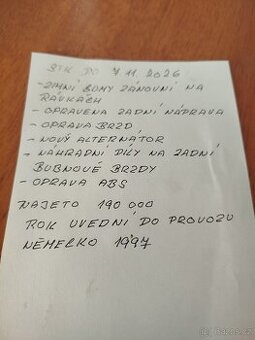 STK DO 7.11.2026
- ZIMNÍ GUMY ZÁNOVNÍ NA
RÁVKÁCH
- OPRAVENA ZADNÍ NÁPRAVA
- OPRAVA BRZD
- NOVÝ ALTERNÁTOR
- NÁHRADNÍ DÍLY NA ZADNÍ
BUBNOVÉ BRZDY
- OPRAVA ABS
NAJETO 190 000
ROK UVEDNÍ DO PROVOZU
NĚMECKO 1997